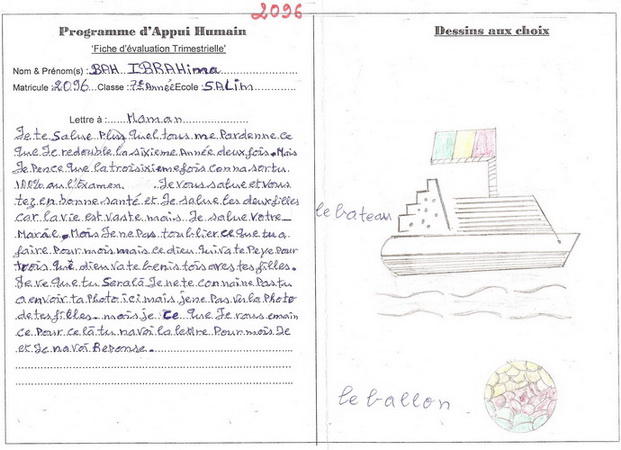 2096
Programme d'Appui Humain
'Fiche d'évaluation Trimestrielle'
Nom & Prénom(s) : BAH IBRAHima
Matricule : 2096 Classe : 7e Année Ecole SALim
Lettre à : Maman
Je te Salue Plus Quel tous me Pardenne ce
que Je redouble la sixieme Année deux fois. Mais
Je Pence Que la troisixieme fois conna sortu
100% au l'Examen. Je vous salue et vous
tez en bonne santé et Je salue les deux filles
car la vie est vaste mais Je salue Votre
Marâe. Mois Je ne Pas toublier ce Que tu a
faire Pour mois mais ce dieu Qui vate Peye Pour
trois Quê dieu vate benis tois aves tes filles.
Je ve Que tu Serala Je ne te connaine Pas tu
a envoir ta Photo ici mais Je ne Pas vis la Photo
de tes filles mois Je ce Que Je vous emain
ce Pour ce là tu na voi la lettre Pour mois Je
et Je na voi Reponse.
Dessins aux choix
le bateau
le ballon